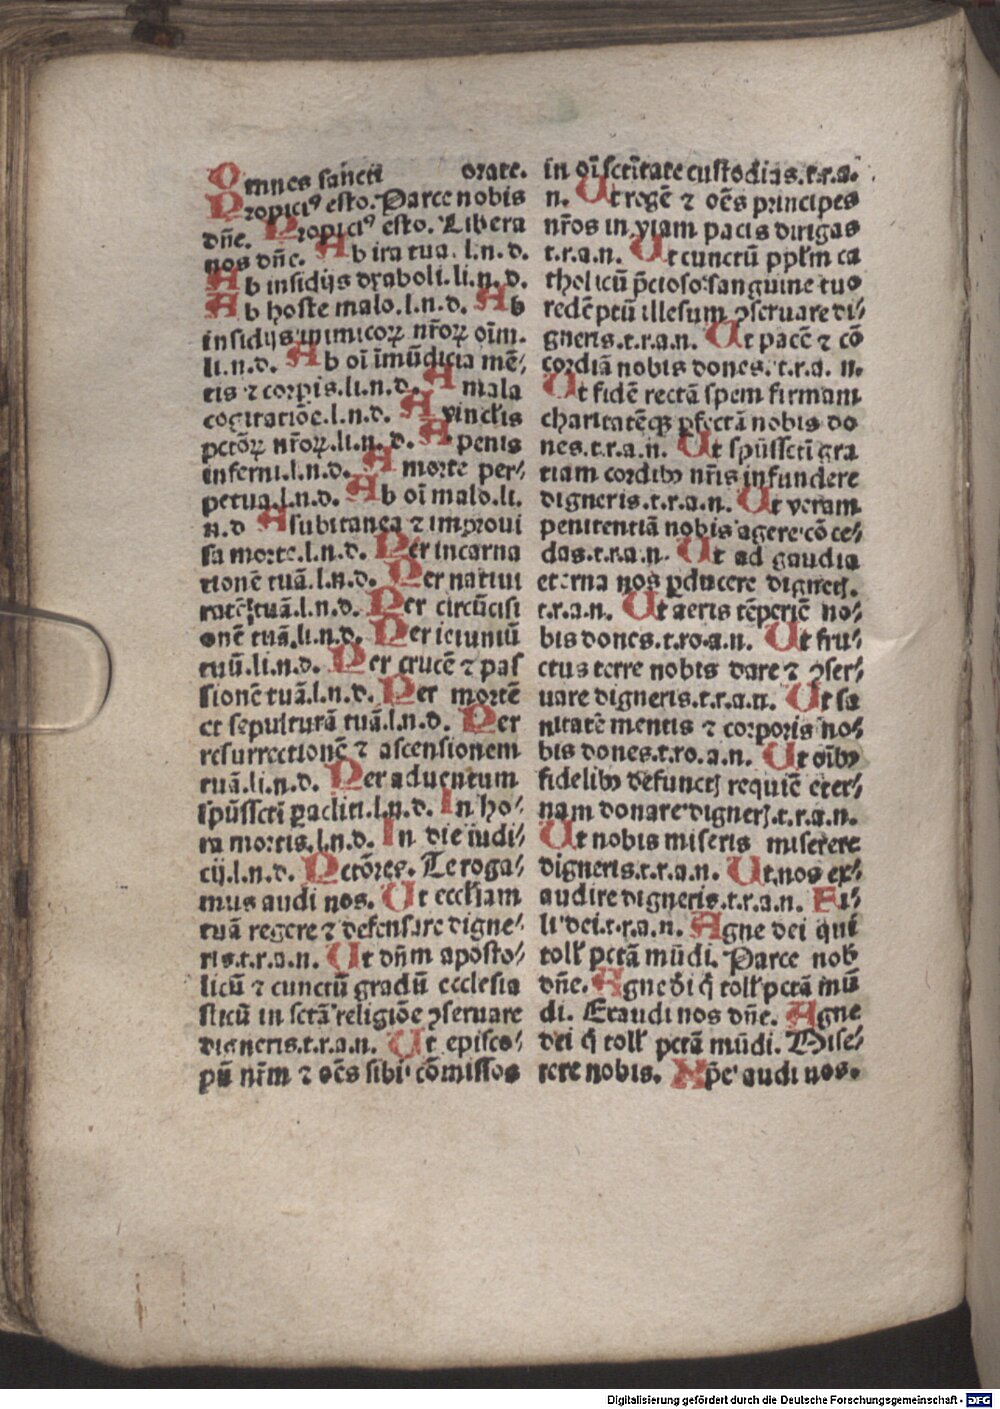 Omnes sancti orate.
Propiciꝰ esto. Parce nobis
dñe. Propiciꝰ esto. Libera
nos dñe. Ab ira tua. l.n.d.
Ab insidijs dyaboli. li.n.d.
Ab hoste malo.l.n.d. Ab
insidijs inimicoꝝ nr̃oꝝ oim̃.
li.n.d. Ab oi ̃ im̃ũdicia mẽ⸗
tis ⁊ corpis.li.n.d. A mala
cogitatiõe.l.n.d. A vinclis
pctõꝝ nr̃oꝝ.li.n.d. A penis
inferni.l.n.d. A morte per⸗
petua.l.n.d. Ab oi ̃ malo.li.
n.d A subitanea ⁊ improui
sa morte.l.n.d. Per incarna
tionẽ tuã.l.n.d. Per natiui
tatẽ tuã.l.n.d. Per circũcisi
onẽ tuã.li.n.d. Per ieiuniũ
tuũ.li.n.d. Per crucẽ ⁊ pas
sionẽ tuã.l.n.d. Per mortẽ
et sepulturã tuã.l.n.d. Per
resurrectionẽ ⁊ ascensionem
tuã.li.n.d. Per aduentum
spũssctĩ ꝑacliti.l.n.d. In ho⸗
ra mortis.l.n.d. In die iudi⸗
cij.l.n.d. Pctõres. Te roga⸗
mus audi nos. Ut eccłiam
tuã regere ⁊ defensare digne⸗
ris.t.r.a.n. Ut dñm aposto⸗
licũ ⁊ cunctũ gradũ ecclesia
sticũ in sctã religiõe ꝯseruare
digneris.t.r.a.n. Ut episco⸗
pũ nr̃m ⁊ oẽs sibi cõmissos
in oi ̃ sctĩtate custodias.t.r.a.
n. Ut regẽ ⁊ oẽs principes
nr̃os in viam pacis dirigas
t.r.a.n. Ut cunctũ ppłm ca
tholicũ p̃cioso sanguine tuo
redẽptũ illesum ꝯseruare di⸗
gneris.t.r.a.n. Ut pacẽ ⁊ cõ
cordiã nobis dones.t.r.a.n.
Ut fidẽ rectã spem firmam
charitatẽqꝫ ꝑfectã nobis do
nes.t.r.a.n. Ut spũssctĩ gra
tiam cordibꝰ nr̃is infundere
digneris.t.r.a.n. Ut veram
penitentiã nobis agere cõce⸗
das.t.r.a.n. Ut ad gaudia
eterna nos ꝑducere dignerꝭ.
t.r.a.n. Ut aeris tẽperiẽ no⸗
bis dones.t.ro.a.n. Ut fru⸗
ctus terre nobis dare ⁊ ꝯser⸗
uare digneris.t.r.a.n. Ut sa
nitatẽ mentis ⁊ corporis no⸗
bis dones.t.ro.a.n. Ut oĩbꝰ
fidelibꝰ defunctꝭ requiẽ eter⸗
nam donare dignerꝭ.t.r.a.n.
Ut nobis miseris miserere
digneris.t.r.a.n. Ut nos ex⸗
audire digneris.t.r.a.n. Fi⸗
li dei.t.r.a.n. Agne dei qui
tołł pctã mũdi. Parce nob̾
dñe. Agne dĩ q̃ tołł pctã mũ
di. Exaudi nos dñe. Agne
dei q̃ tołł pctã mũdi. Mise⸗
rere nobis. Xp̃e audi nos.
Digitalisierung gefördert durch die Deutsche Forschungsgemeinschaft - DFG